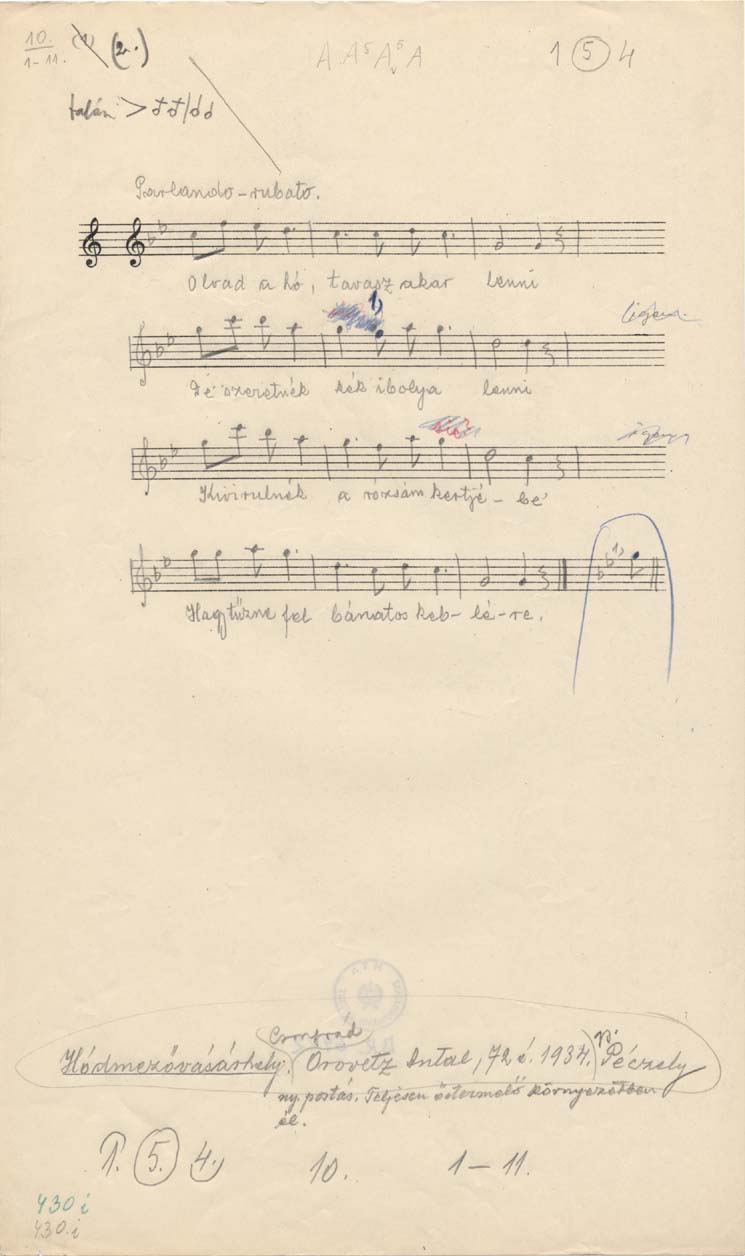 10. (1) (2.)
1-11.
A A⁵ A⁵ A
1 5 4
talán >
Parlando-rubato.
Olvad a hó, tavasz akar lenni
1)
De szeretnék kék ibolya lenni
Kivirulnék a rózsám kertjé-be
1)
Hagy tűzne fel bánatos keb-lé-re.
Csongrád
Hódmezővásárhely. Orovetz Antal, 72 é. 1934. Péczely
ny. postás. Teljesen őstermelő környezetben
él.
1. 5. 4. 10. 1-11.
430 i
430.i